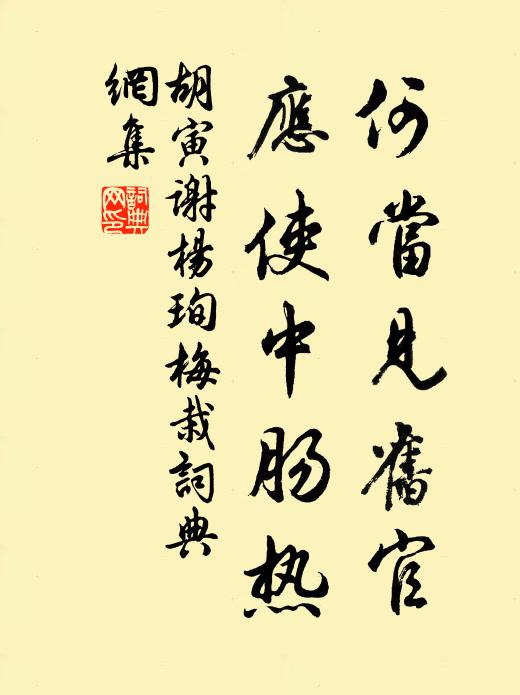 何當見舊官
應使中肠热
胡寅谢楊珣梅栽詞典
網集
詞典網印